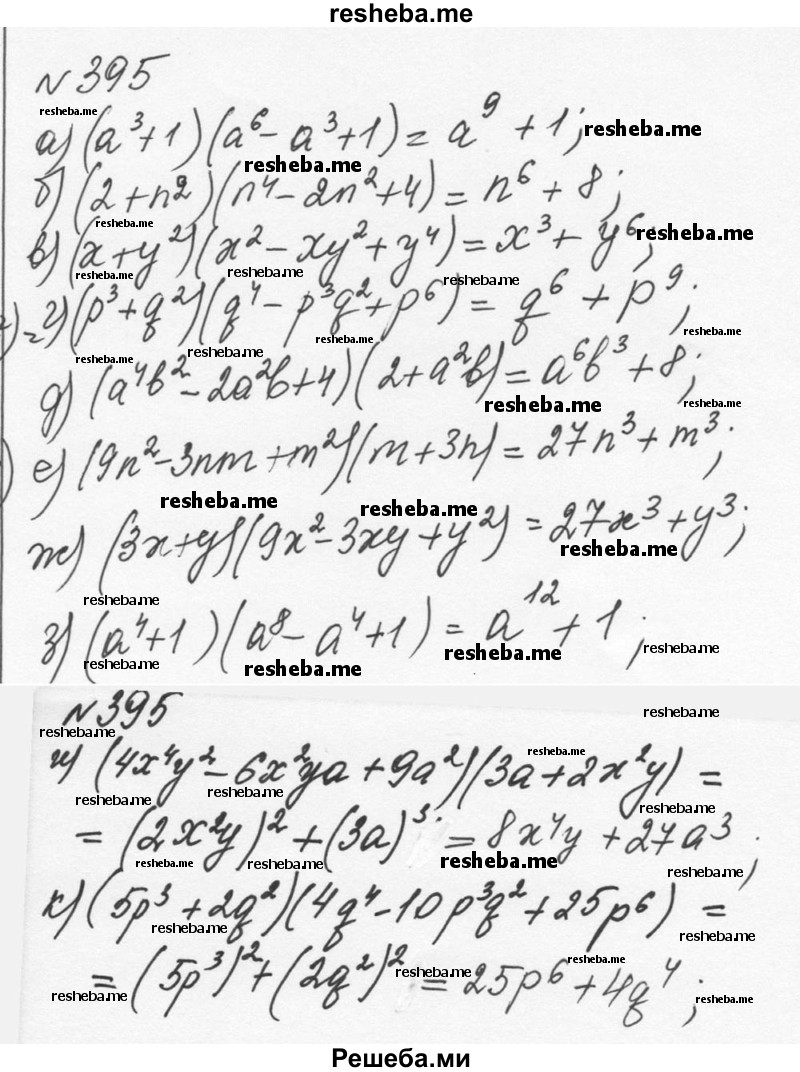 resheba.me
№395
а) (a³+1)(a⁶-a³+1)=a⁹+1;
б) (2+n²)(n⁴-2n²+4)=n⁶+8;
в) (x+y²)(x²-xy²+y⁴)=x³+y⁶;
г) (p³+q²)(q⁴-p³q²+p⁶)=q⁶+p⁹;
д) (a⁴b²-2a²b+4)(2+a²b)=a⁶b³+8;
е) (9n²-3nm+m²)(m+3n)=27n³+m³;
ж) (3x+y)(9x²-3xy+y²)=27x³+y³;
з) (a⁴+1)(a⁸-a⁴+1)=a¹²+1;
№395
и) (4x⁴y²-6x²ya+9a²)(3a+2x²y)=
=(2x²y)²+(3a)³=8x⁴y+27a³;
к) (5p³+2q²)(4q⁴-10p³q²+25p⁶)=
=(5p³)²+(2q²)²=25p⁶+4q⁴;
Решеба.ми